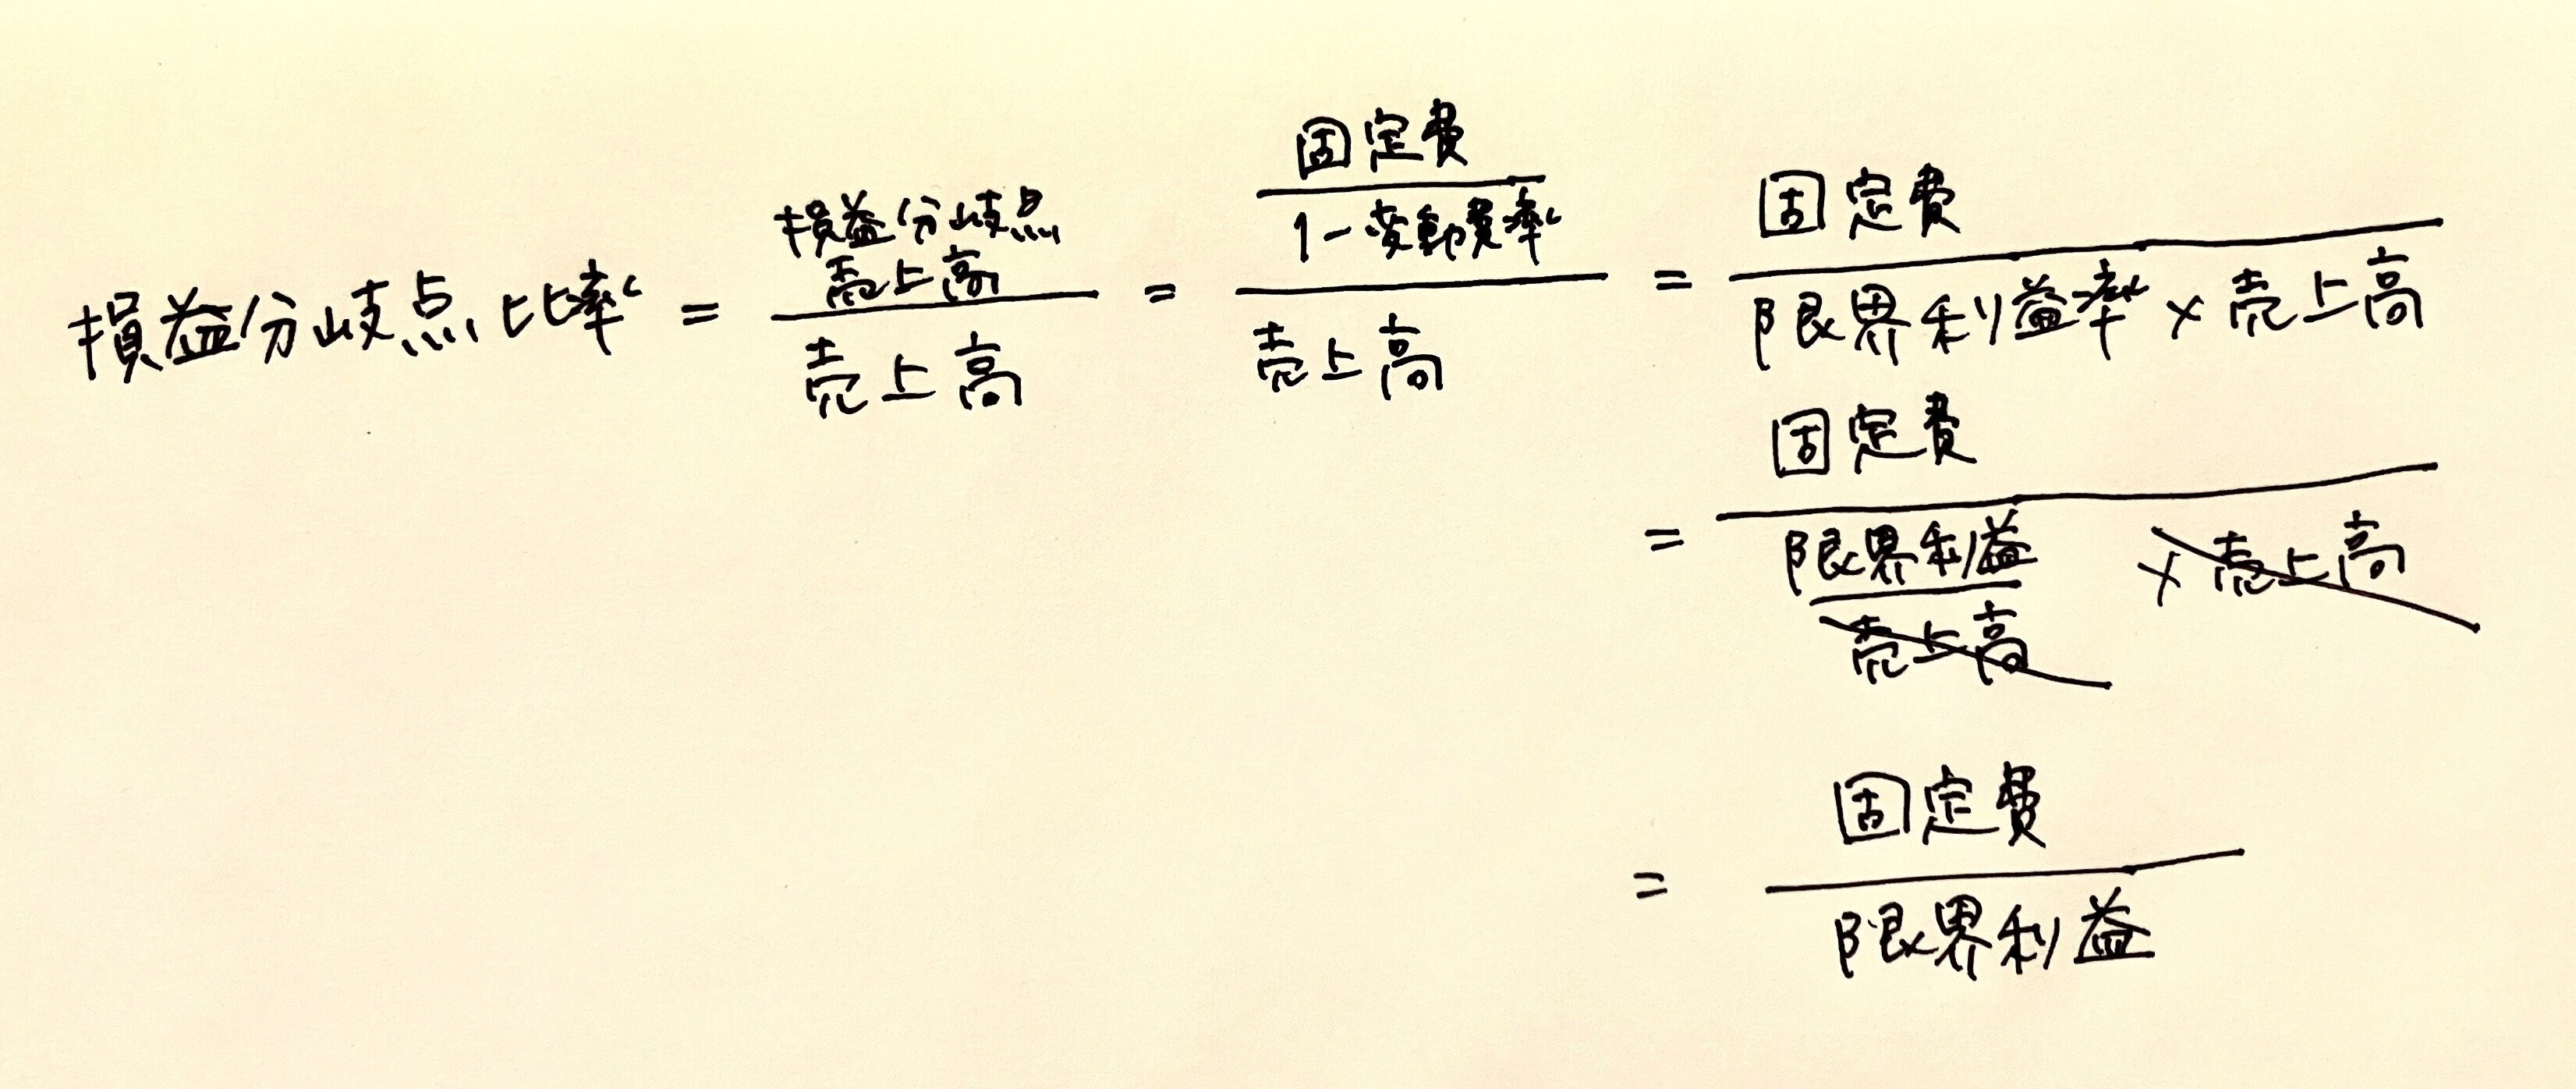 損益分岐点比率 = 損益分岐点売上高 / 売上高 = (固定費 / (1-変動費率)) / 売上高 = 固定費 / (限界利益率 × 売上高)
= 固定費 / ((限界利益 / 売上高) × 売上高)
= 固定費 / 限界利益